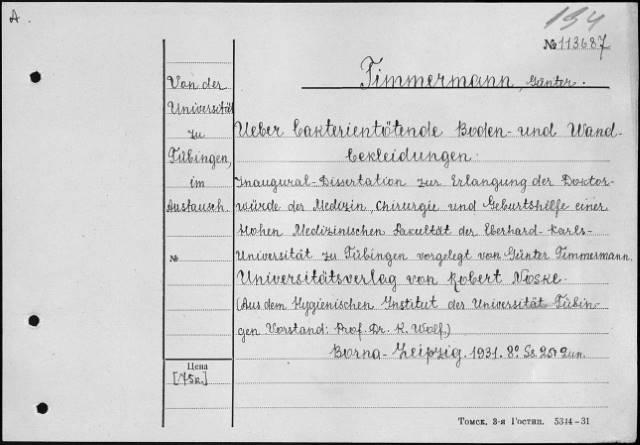 A.
194
№113687
Timmermann, Günter.
Von der
Universität
zu
Tübingen,
im
Austausch.
Ueber bakterientötende Boden- und Wand-
bekleidungen:
Inaugural-Dissertation zur Erlangung der Doktor-
würde der Medizin, Chirurgie und Geburtshilfe einer
Hohen Medizinischen Fakultät der Eberhard-Karls-
№
Universität zu Tübingen vorgelegt von Günter Timmermann.
Universitätsverlag von Robert Noske.
(Aus dem Hygienischen Institut der Universität Tübin-
gen Vorstand: Prof. Dr. K. Wolf.)
Borna-Leipzig. 1931. 8º
Цена
[75к.]
Томск, 3-я Гостип. 5344-31